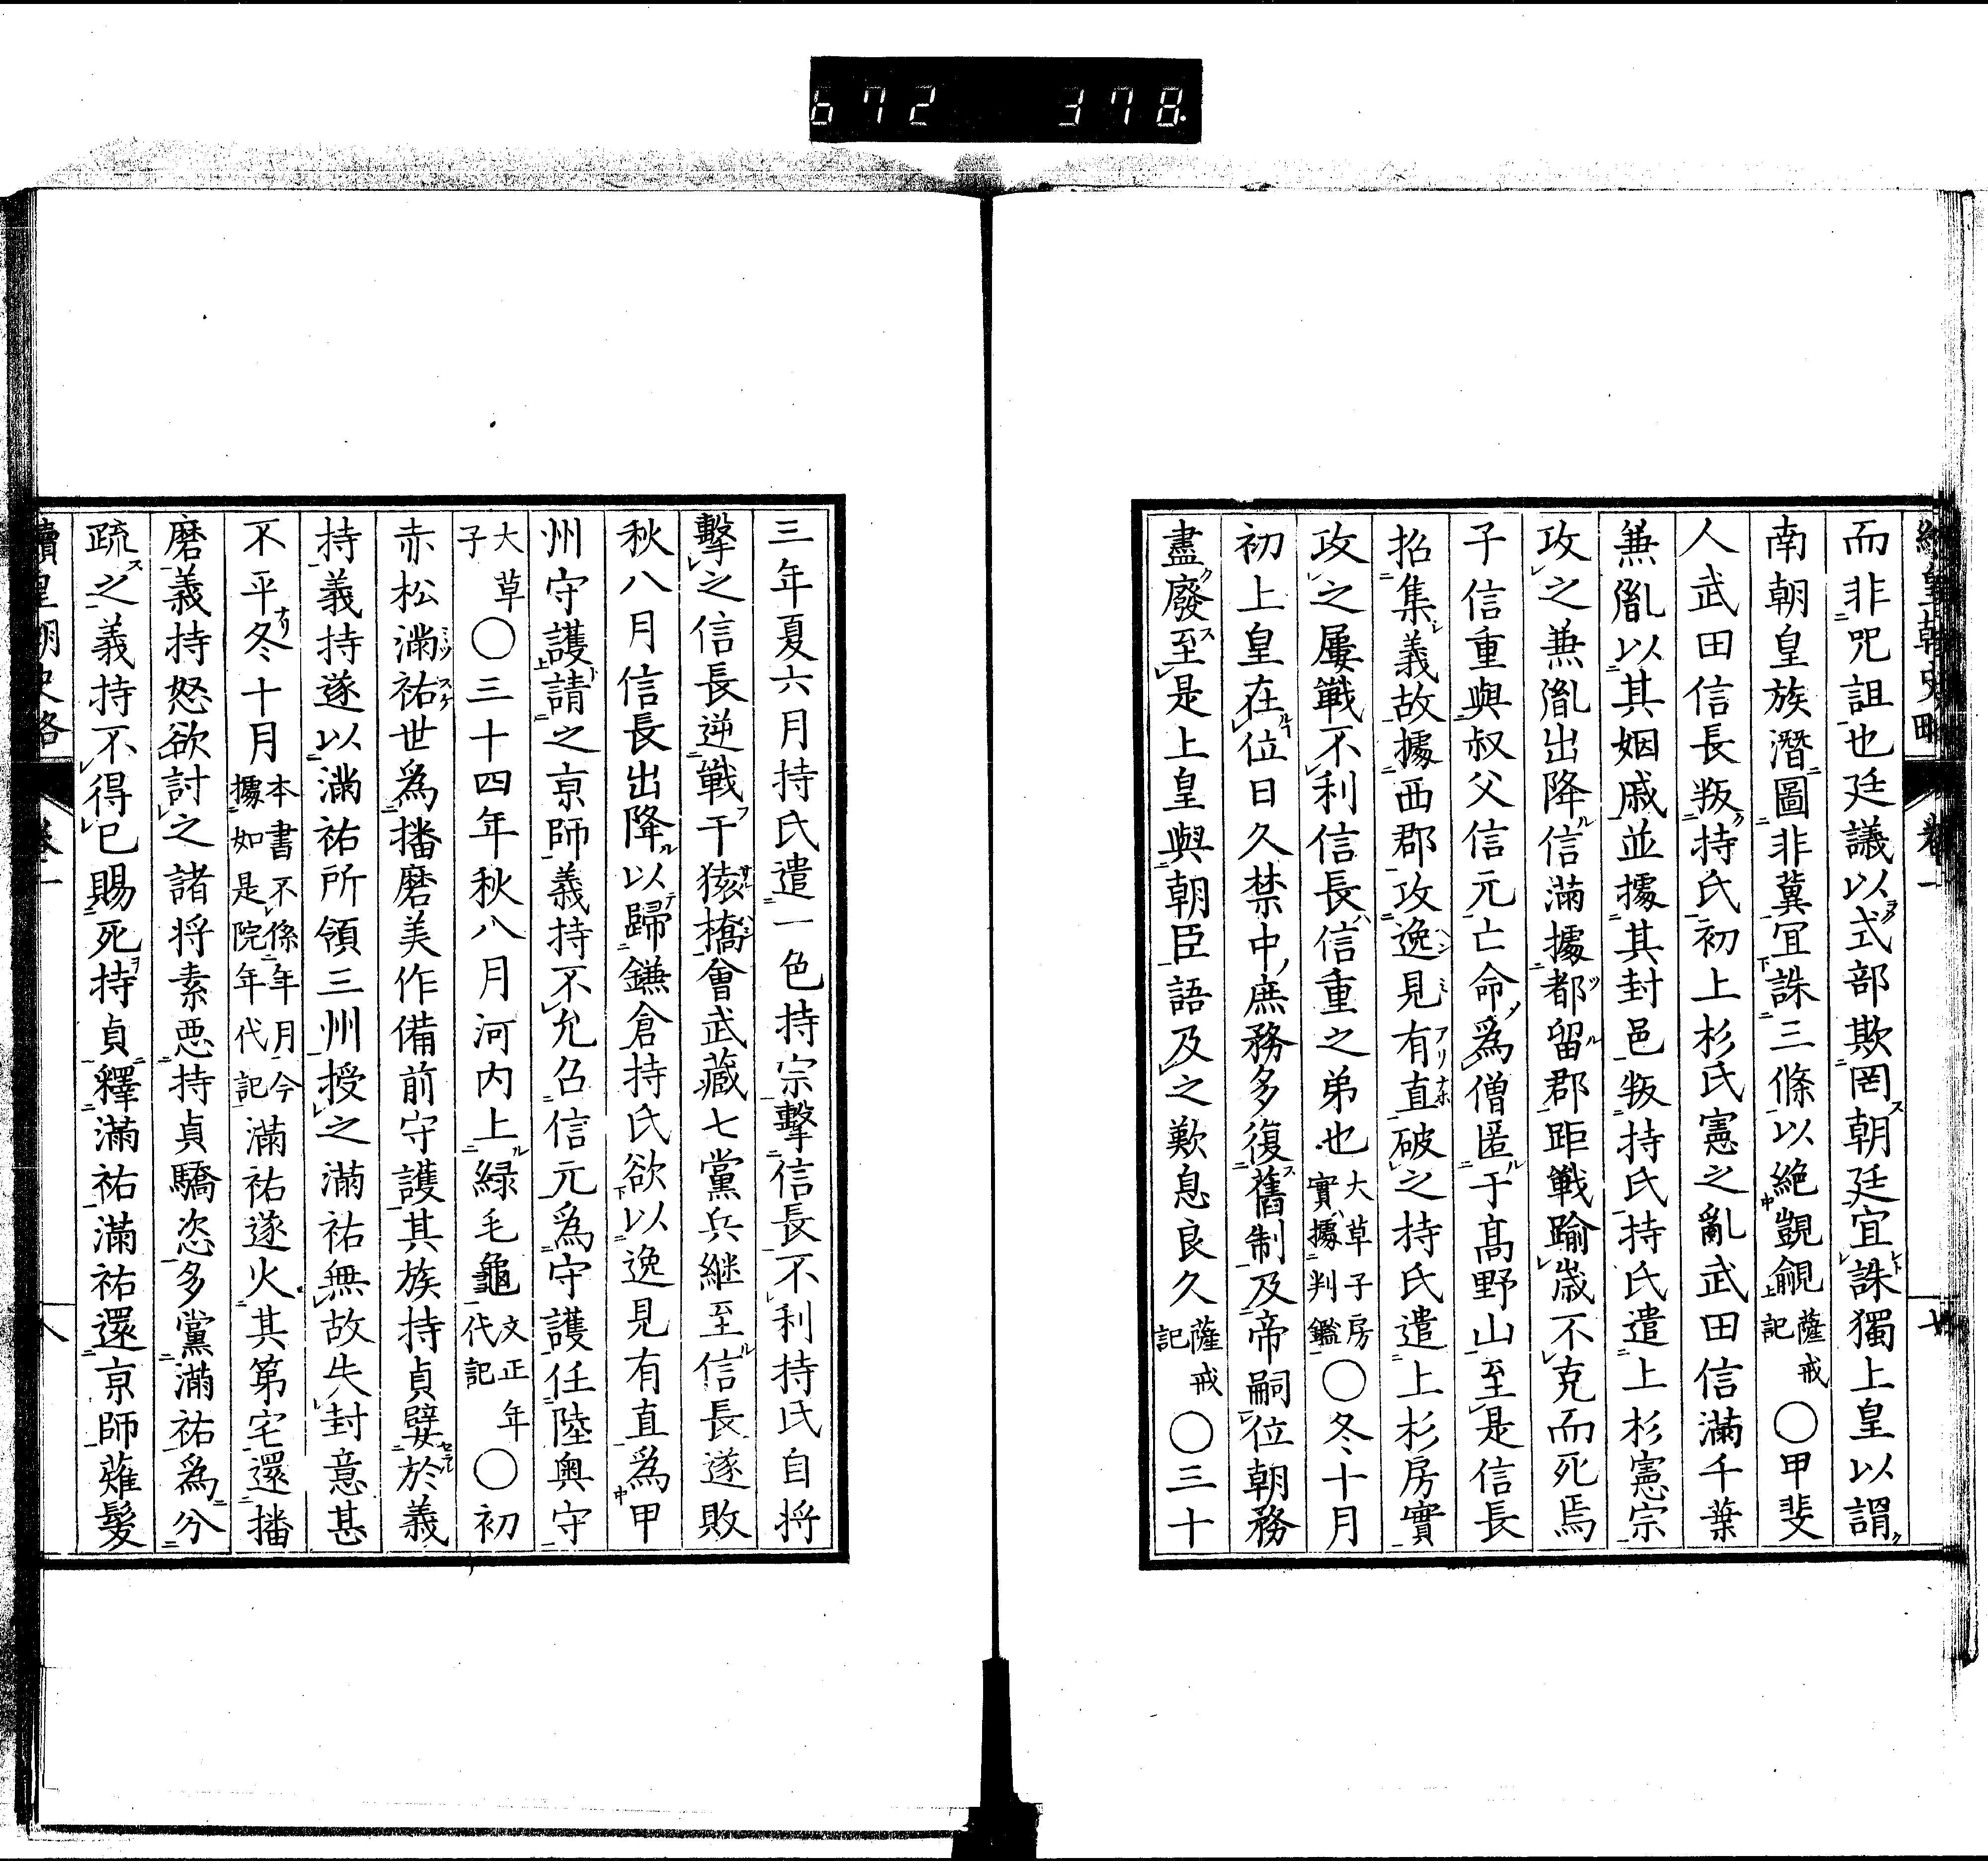 672 378.
續皇朝史略 卷一 七
而非咒詛也廷議以式部欺罔朝廷宜誅獨上皇以謂
南朝皇族潛圖非冀宜誅三條以絶覬覦薩戒記〇甲斐
人武田信長叛持氏初上杉氏憲之亂武田信滿千葉
兼胤以其姻戚並據其封邑叛持氏持氏遣上杉憲宗
攻之兼胤出降信滿據都留郡距戰踰歳不克而死焉
子信重與叔父信元亡命爲僧匿于高野山至是信長
招集義故據西郡攻逸見有直破之持氏遣上杉房實
攻之屢戰不利信長信重之弟也大草子房實據判鑑〇冬十月
初上皇在位日久禁中庶務多復舊制及帝嗣位朝務
盡廢至是上皇與朝臣語及之歎息良久薩戒記〇三十
三年夏六月持氏遣一色持宗擊信長不利持氏自將
擊之信長逆戰于猿橋會武藏七黨兵継至信長遂敗
秋八月信長出降以歸鎌倉持氏欲以逸見有直爲甲
州守護請之京師義持不允召信元爲守護任陸奥守
大草子〇三十四年秋八月河内上緑毛龜文正年代記〇初
赤松滿祐世爲播磨美作備前守護其族持貞嬖於義
持義持遂以滿祐所領三州授之滿祐無故失封意甚
不平冬十月本書不係年月今據如是院年代記滿祐遂火其第宅還播
磨義持怒欲討之諸将素惡持貞驕恣多黨滿祐爲分
疏之義持不得已賜死持貞釋滿祐滿祐還京師薙髮
續皇朝史略 卷一 八